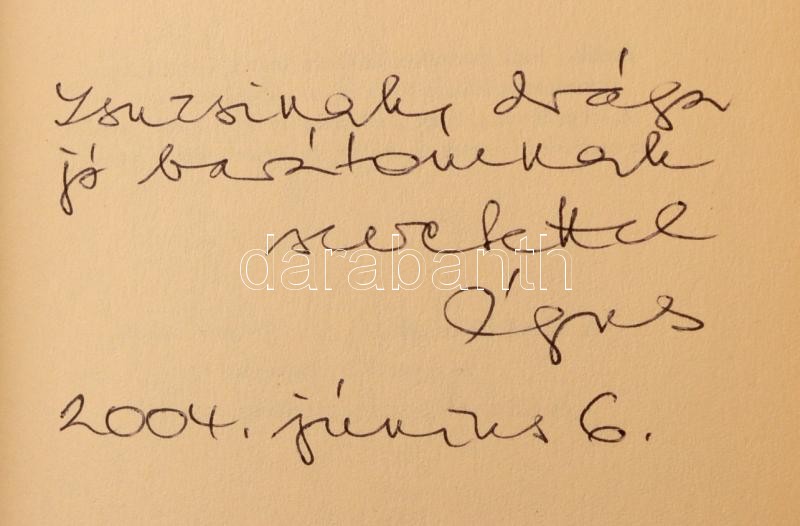 Zsuzsinak, drága
jó barátomnak
szeretettel
darabanth
Ágnes
2004. június 6.